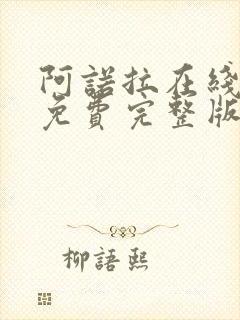 阿諾拉在綫
免費完整版
柳語熙